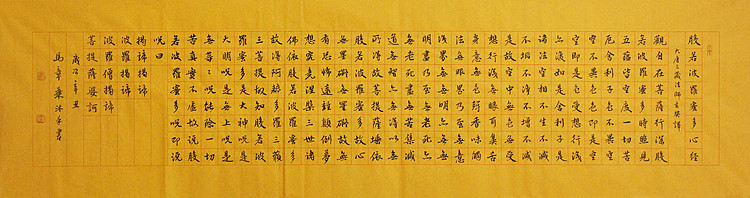 般若波羅蜜多心經
大唐三藏法師玄奘譯
觀自在菩薩行深般
若波羅蜜多時照見
五蘊皆空度一切苦
厄舍利子色不異空
空不異色色即是空
空即是色受想行識
亦復如是舍利子是
諸法空相不生不滅
不垢不淨不增不減
是故空中無色無受
想行識無眼耳鼻舌
身意無色聲香味觸
法無眼界乃至無意
識界無無明亦無無
明盡乃至無老死亦
無老死盡無苦集滅
道無智亦無得以無
所得故菩提薩埵依
般若波羅蜜多故心
無罣礙無罣礙故無
有恐怖遠離顛倒夢
想究竟涅槃三世諸
佛依般若波羅蜜多
故得阿耨多羅三藐
三菩提故知般若波
羅蜜多是大神咒是
大明咒是無上咒是
無等々咒能除一切
苦真實不虛故說般
若波羅蜜多咒即說
咒曰
揭諦揭諦
波羅揭諦
波羅僧揭諦
菩提薩婆訶
歲次辛丑
馬章乘沐手書